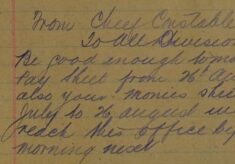 From Chief Constable
To All Division
Be good enough to
Pay Sheet from 26th
also your monies
July to 26 August in
reach this office by
morning next